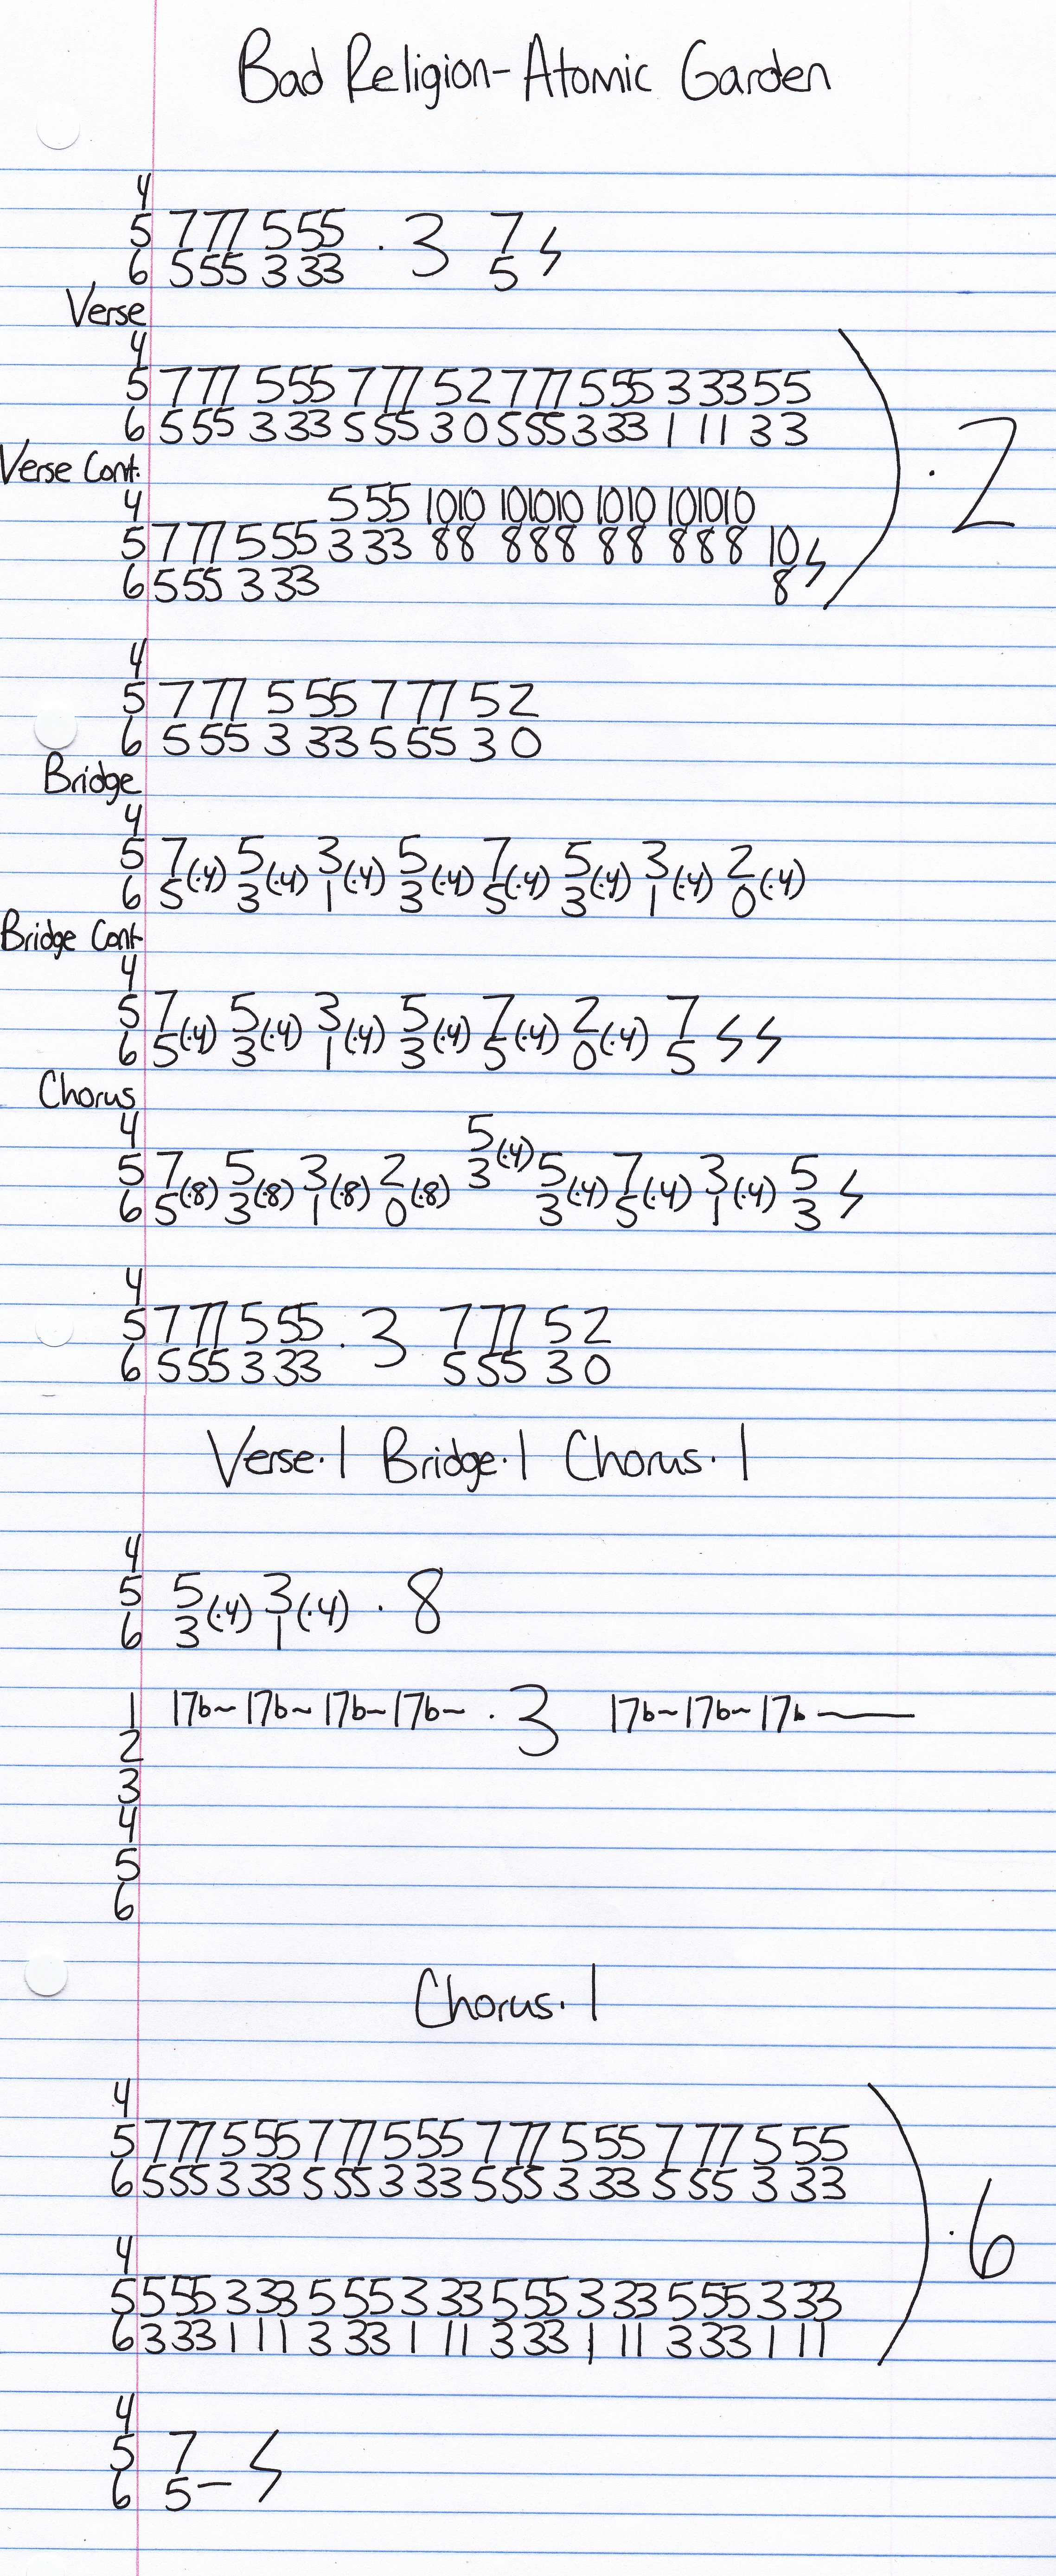 Bad Religion-Atomic Garden
4
5 7 77 5 55 · 3 7
6 5 55 3 33 5
Verse
4
5 7 77 5 55 7 77 5 2 7 77 5 55 3 33 5 5
6 5 55 3 33 5 55 3 0 5 55 3 33 1 11 3 3 · 2
Verse Cont.
4 5 55 1010 101010 1010 101010
5 7 77 5 55 3 33 88 888 88 888 10
6 5 55 3 33 8
4
5 7 77 5 55 7 77 5 2
6 5 55 3 33 5 55 3 0
Bridge
4
5 7(·4) 5(·4) 3(·4) 5(·4) 7(·4) 5(·4) 3(·4) 2(·4)
6 5 3 1 3 5 3 1 0
Bridge Cont
4
5 7(·4) 5(·4) 3(·4) 5(·4) 7(·4) 2(·4) 7
6 5 3 1 3 5 0 5
Chorus
4 5(·4)
5 7(·8) 5(·8) 3(·8) 2(·8) 3 5(·4) 7(·4) 3(·4) 5
6 5 3 1 0 3 5 1 3
4
5 7 77 5 55 · 3 7 77 5 2
6 5 55 3 33 5 55 3 0
Verse·1 Bridge·1 Chorus·1
4
5 5(·4) 3(·4) · 8
6 3 1
1 17b~ 17b~ 17b~ 17b~ · 3 17b~ 17b~ 17b—
2
3
4
5
6
Chorus·1
4
5 7 77 5 55 7 77 5 55 7 77 5 55 7 77 5 55
6 5 55 3 33 5 55 3 33 5 55 3 33 5 55 3 33
· 6
4
5 5 55 3 33 5 55 3 33 5 55 3 33 5 55 3 33
6 3 33 1 11 3 33 1 11 3 33 1 11 3 33 1 11
4
5 7
6 5 —